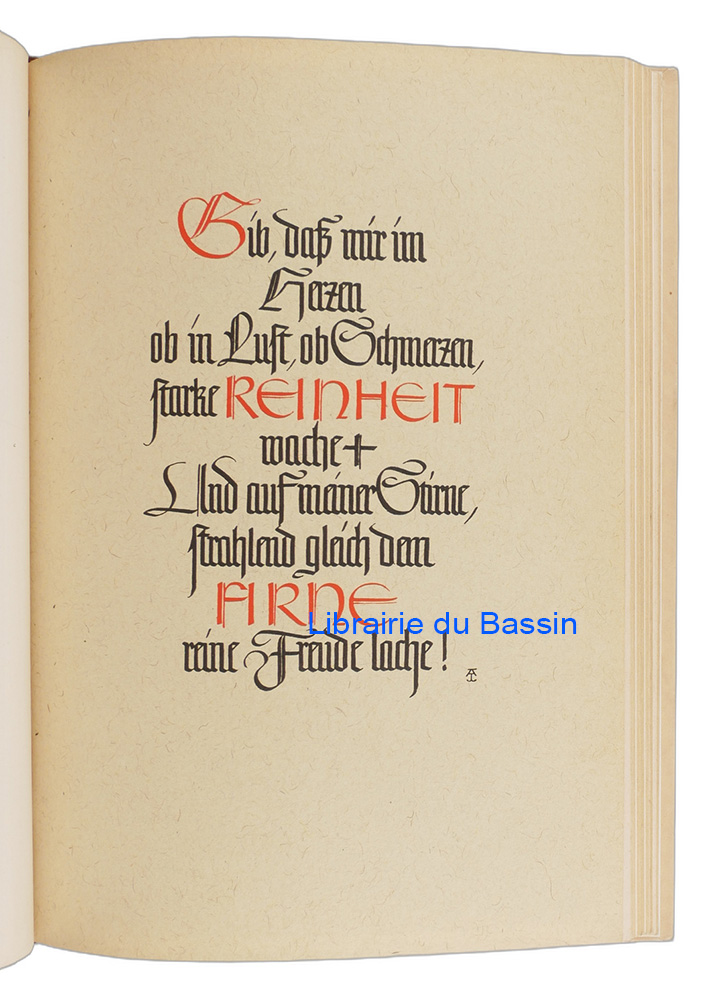 Gib, daß mir im
Herzen
ob in Lust, ob Schmerzen,
starke REINHEIT
wache +
Und auf meiner Stirne,
strahlend gleich dem
FIRNE
Librairie du Bassin
reine Freude lache!